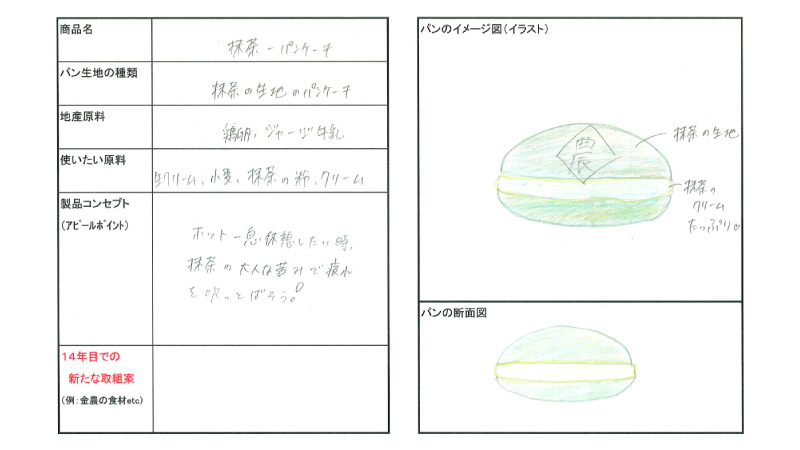 商品名
抹茶ーパンケーキ
パン生地の種類
抹茶の生地のパンケーキ
地産原料
鶏卵、ジャージ牛乳
使いたい原料
生クリーム、小麦、抹茶の粉、クリーム
製品コンセプト
(アピールポイント)
ホット一息休憩したい時、
抹茶の大人な苦みで疲れ
を吹っとばそう!
14年目での
新たな取組案
(例:金農の食材etc)
パンのイメージ図(イラスト)
農
抹茶の生地
抹茶の
クリーム
たっぷり
パンの断面図